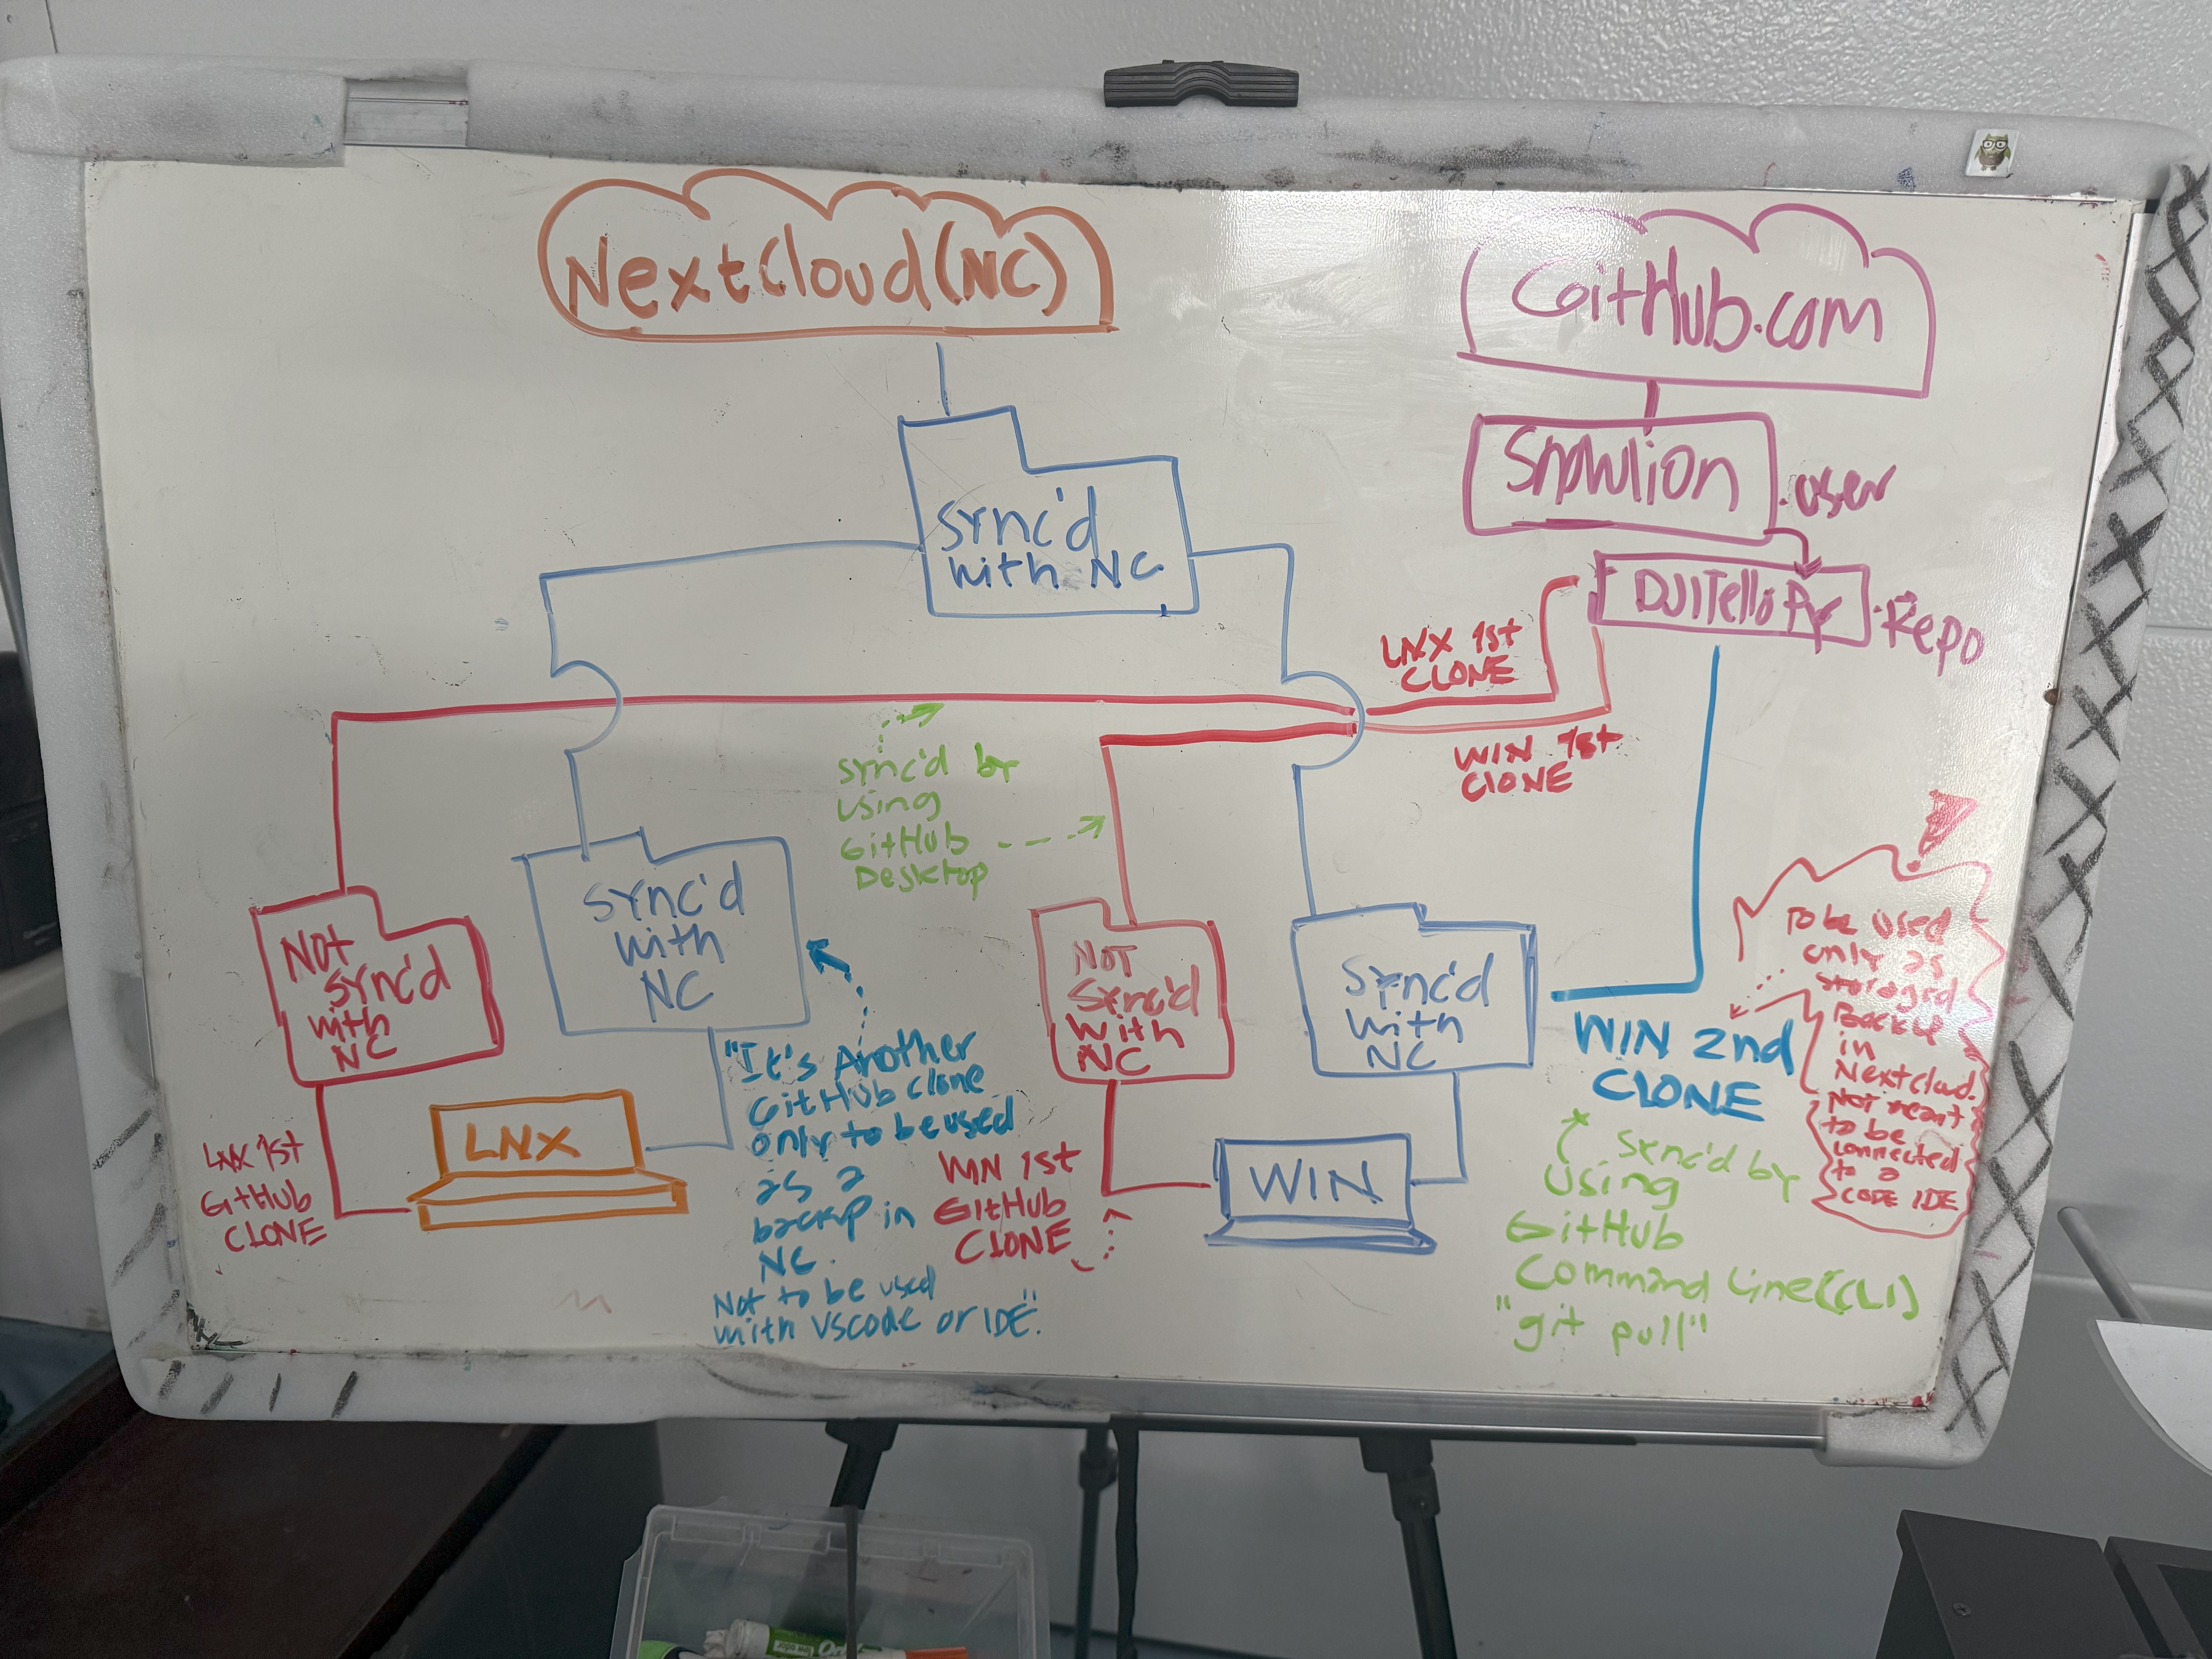 NextCloud(NC)
GitHub.com
Snowlion
.user
DJITelloPy
.Repo
Sync'd
with NC
LNX 1st
CLONE
WIN 1st
CLONE
Sync'd by
Using
GitHub
Desktop
Not
Sync'd
with
NC
Sync'd
with
NC
NOT
Sync'd
With
NC
Sync'd
with
NC
WIN 2nd
CLONE
To be used
only as
Backup
in
Nextcloud.
Not meant
to be
connected
to a
CODE IDE
"It's Another
GitHub clone
only to be used
as a
backup in
NC.
Not to be used
with VScode or IDE".
LNX 1st
GitHub
CLONE
LNX
WIN 1st
GitHub
CLONE
WIN
Sync'd by
Using
GitHub
Command Line(CLI)
"git pull"